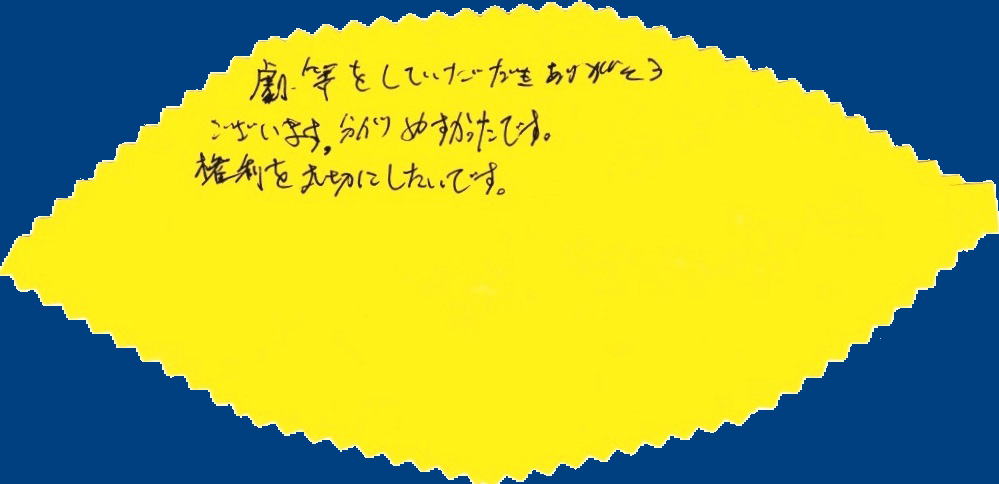 劇等をしていただきありがとう
ございます。分かりやすかったです。
権利を大切にしたいです。